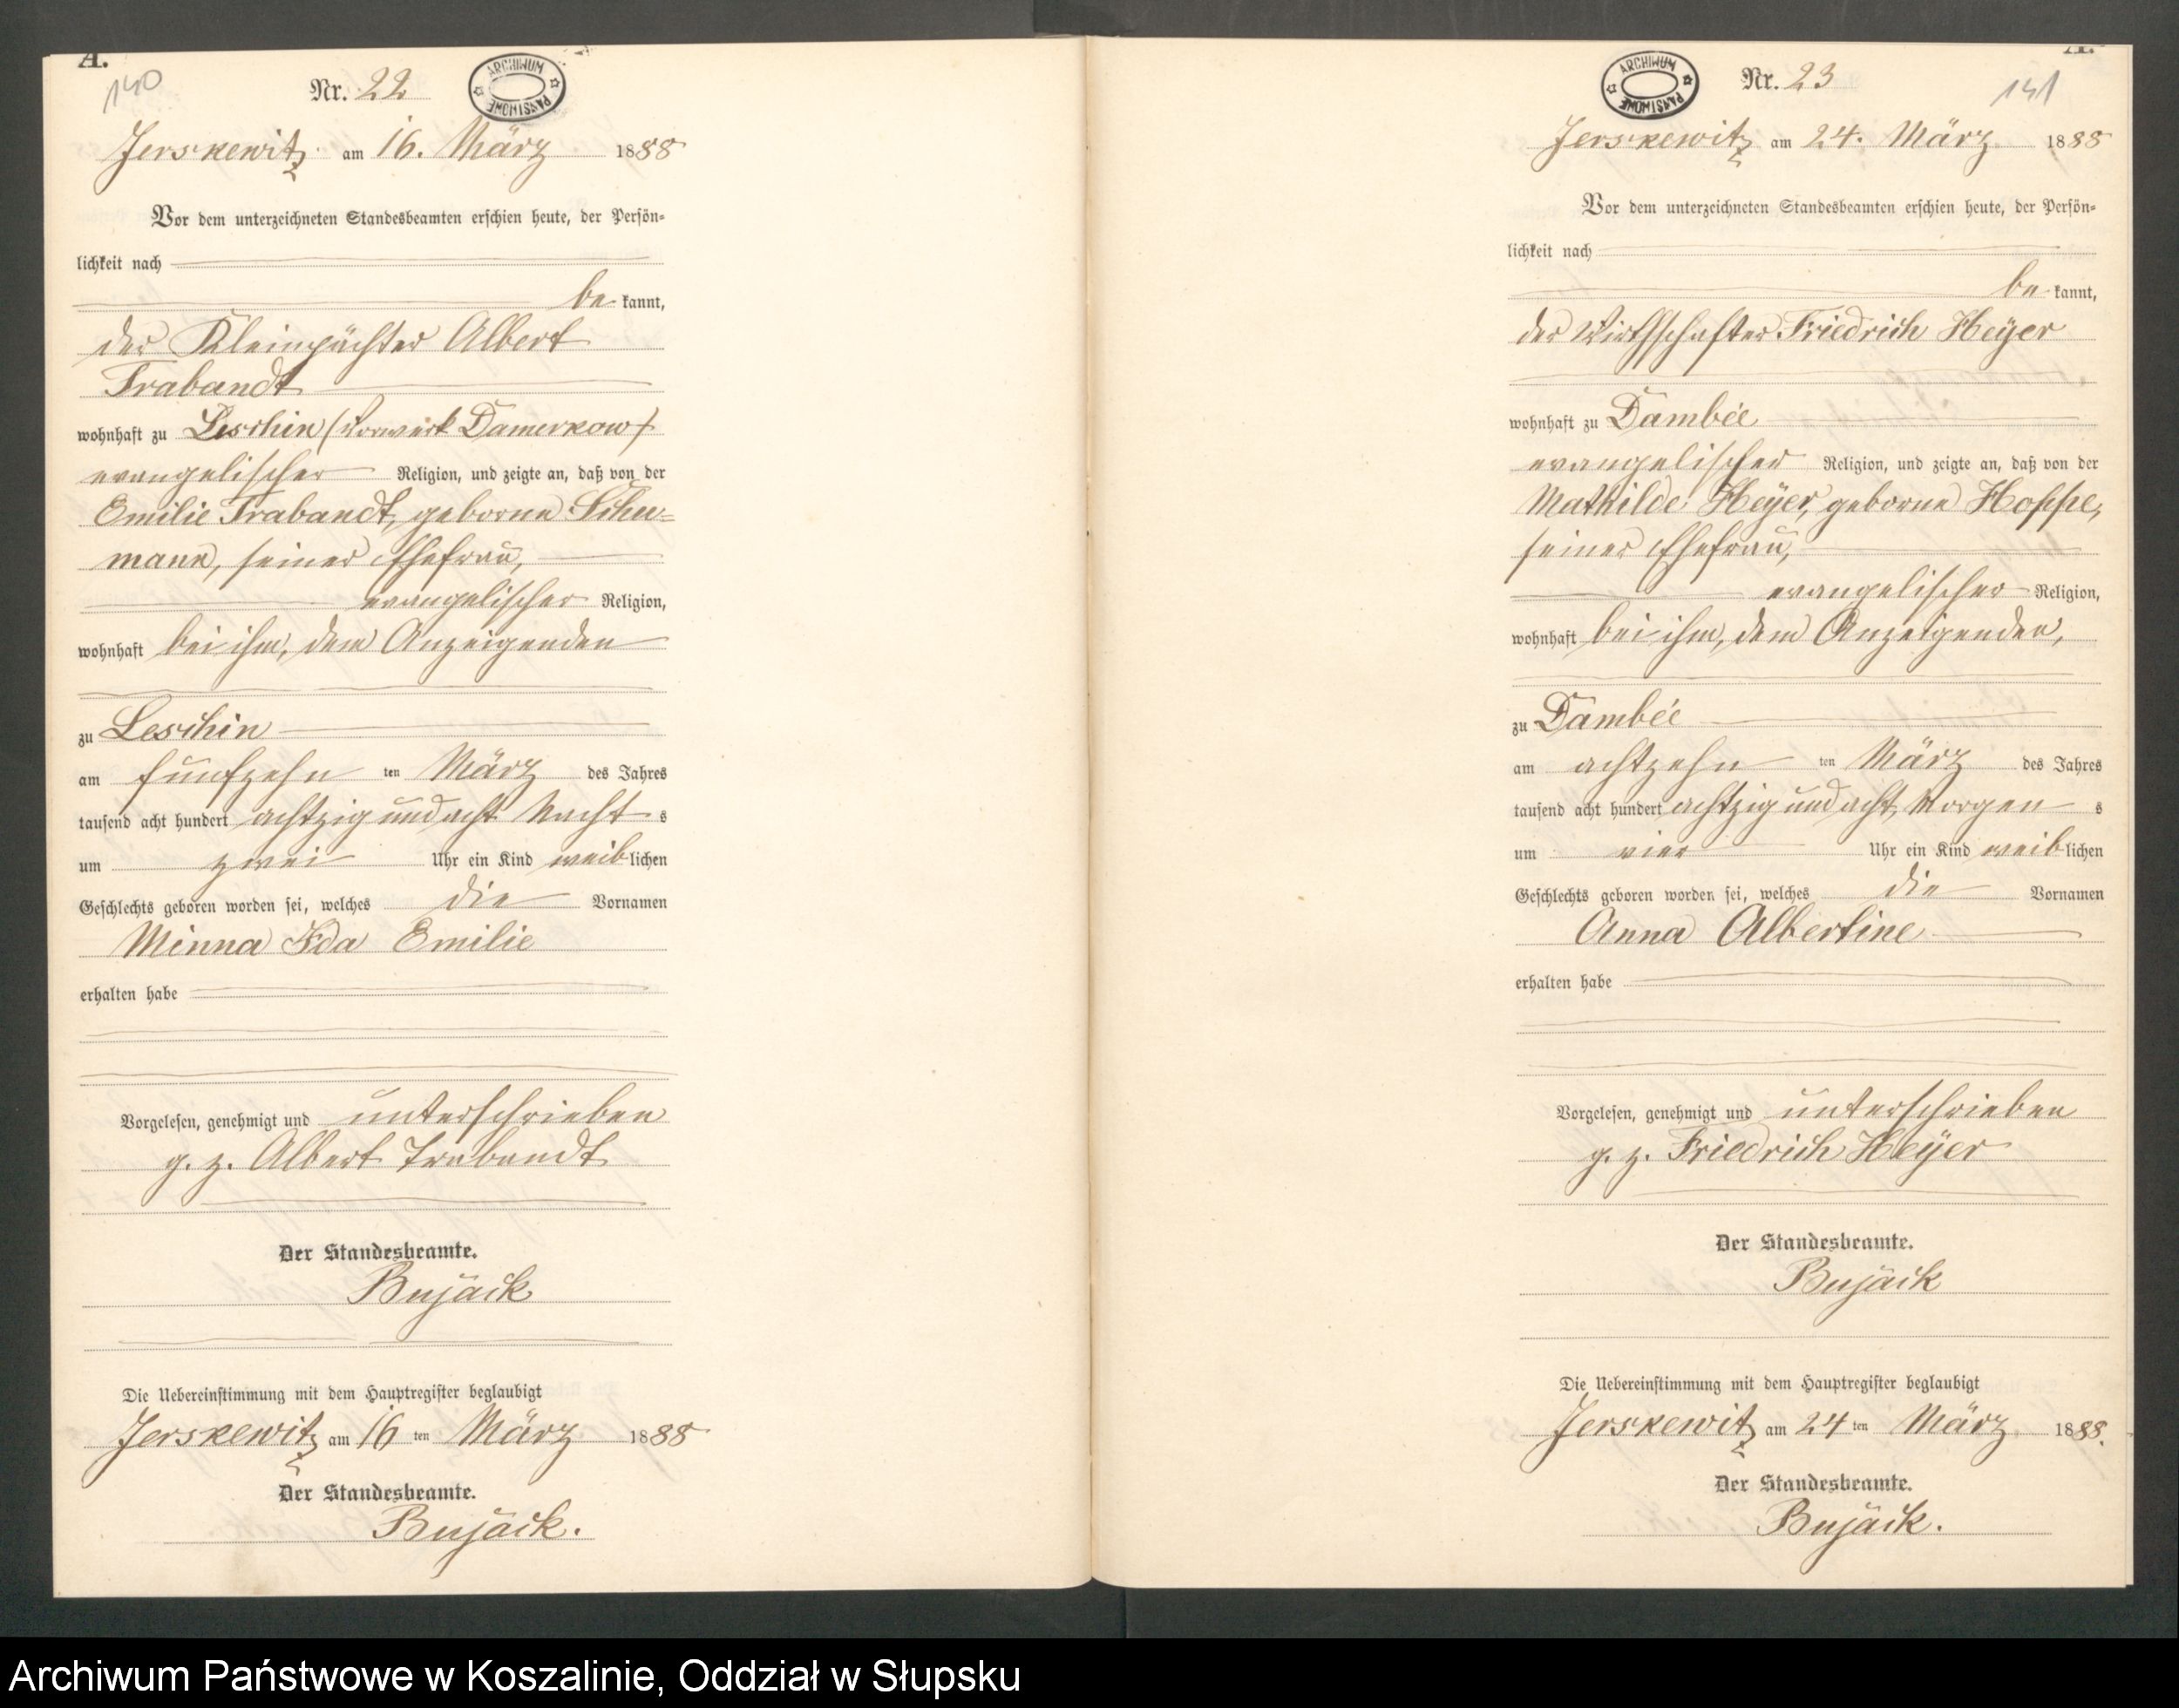 A.
140
Nr. 22
ARCHIWUM PAŃSTWOWE
Jerskewitz am 16. März 1888
Vor dem unterzeichneten Standesbeamten erschien heute, der Persön-
lichkeit nach
be kannt,
der Kleinpächter Albert
Trabandt
wohnhaft zu Leschin (Vorwerk Damerkow)
evangelischer Religion, und zeigte an, daß von der
Emilie Trabandt, geborne Schu-
mann, seiner Ehefrau,
evangelischer Religion,
wohnhaft bei ihm, dem Anzeigenden
zu Leschin
am fünfzehn ten März des Jahres
tausend acht hundert achtzig und acht Nacht s
um zwei Uhr ein Kind weib lichen
Geschlechts geboren worden sei, welches die Vornamen
Minna Ida Emilie
erhalten habe
Vorgelesen, genehmigt und unterschrieben
g. z. Albert Trabandt
Der Standesbeamte.
Bujack
Die Uebereinstimmung mit dem Hauptregister beglaubigt
Jerskewitz am 16 ten März 1888
Der Standesbeamte.
Bujack.
A.
141
Nr. 23
ARCHIWUM PAŃSTWOWE
Jerskewitz am 24. März 1888
Vor dem unterzeichneten Standesbeamten erschien heute, der Persön-
lichkeit nach
be kannt,
der Wirthschafter Friedrich Heÿer
wohnhaft zu Dambée
evangelischer Religion, und zeigte an, daß von der
Mathilde Heÿer, geborne Hoppe,
seiner Ehefrau,
evangelischer Religion,
wohnhaft bei ihm, dem Anzeigenden,
zu Dambée
am achtzehn ten März des Jahres
tausend acht hundert achtzig und acht Morgen s
um vier Uhr ein Kind weib lichen
Geschlechts geboren worden sei, welches die Vornamen
Anna Albertine
erhalten habe
Vorgelesen, genehmigt und unterschrieben
g. z. Friedrich Heÿer
Der Standesbeamte.
Bujack
Die Uebereinstimmung mit dem Hauptregister beglaubigt
Jerskewitz am 24 ten März 1888.
Der Standesbeamte.
Bujack.
Archiwum Państwowe w Koszalinie, Oddział w Słupsku